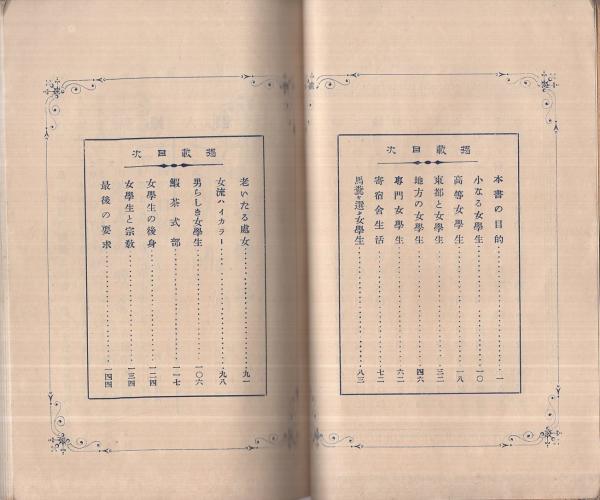 掲載目次
本書の目的…………一
小なる女學生…………一〇
高等女學生…………一八
東都と女學生…………三二
地方の女學生…………四六
專門女學生…………六二
寄宿舍生活…………七二
馬鹿を選ぶ女學生…………八三
掲載目次
老いたる處女…………九一
女流ハイカラー…………九八
男らしき女學生…………一〇六
鰕茶式部…………一一七
女學生の後身…………一二四
女學生と宗敎…………一三四
最後の要求…………一四四